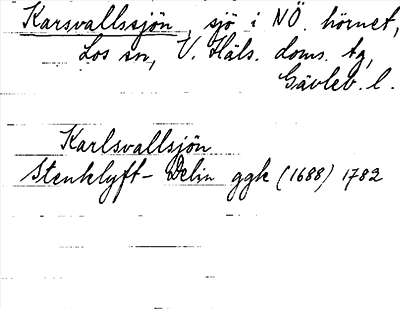 Karsvallssjön, sjö i NÖ. hörnet,
Los sn, V. Häls. doms. tg,
Gävleb. l.
Karlsvallsjön
Stenklyft- Delin ggk (1688) 1782